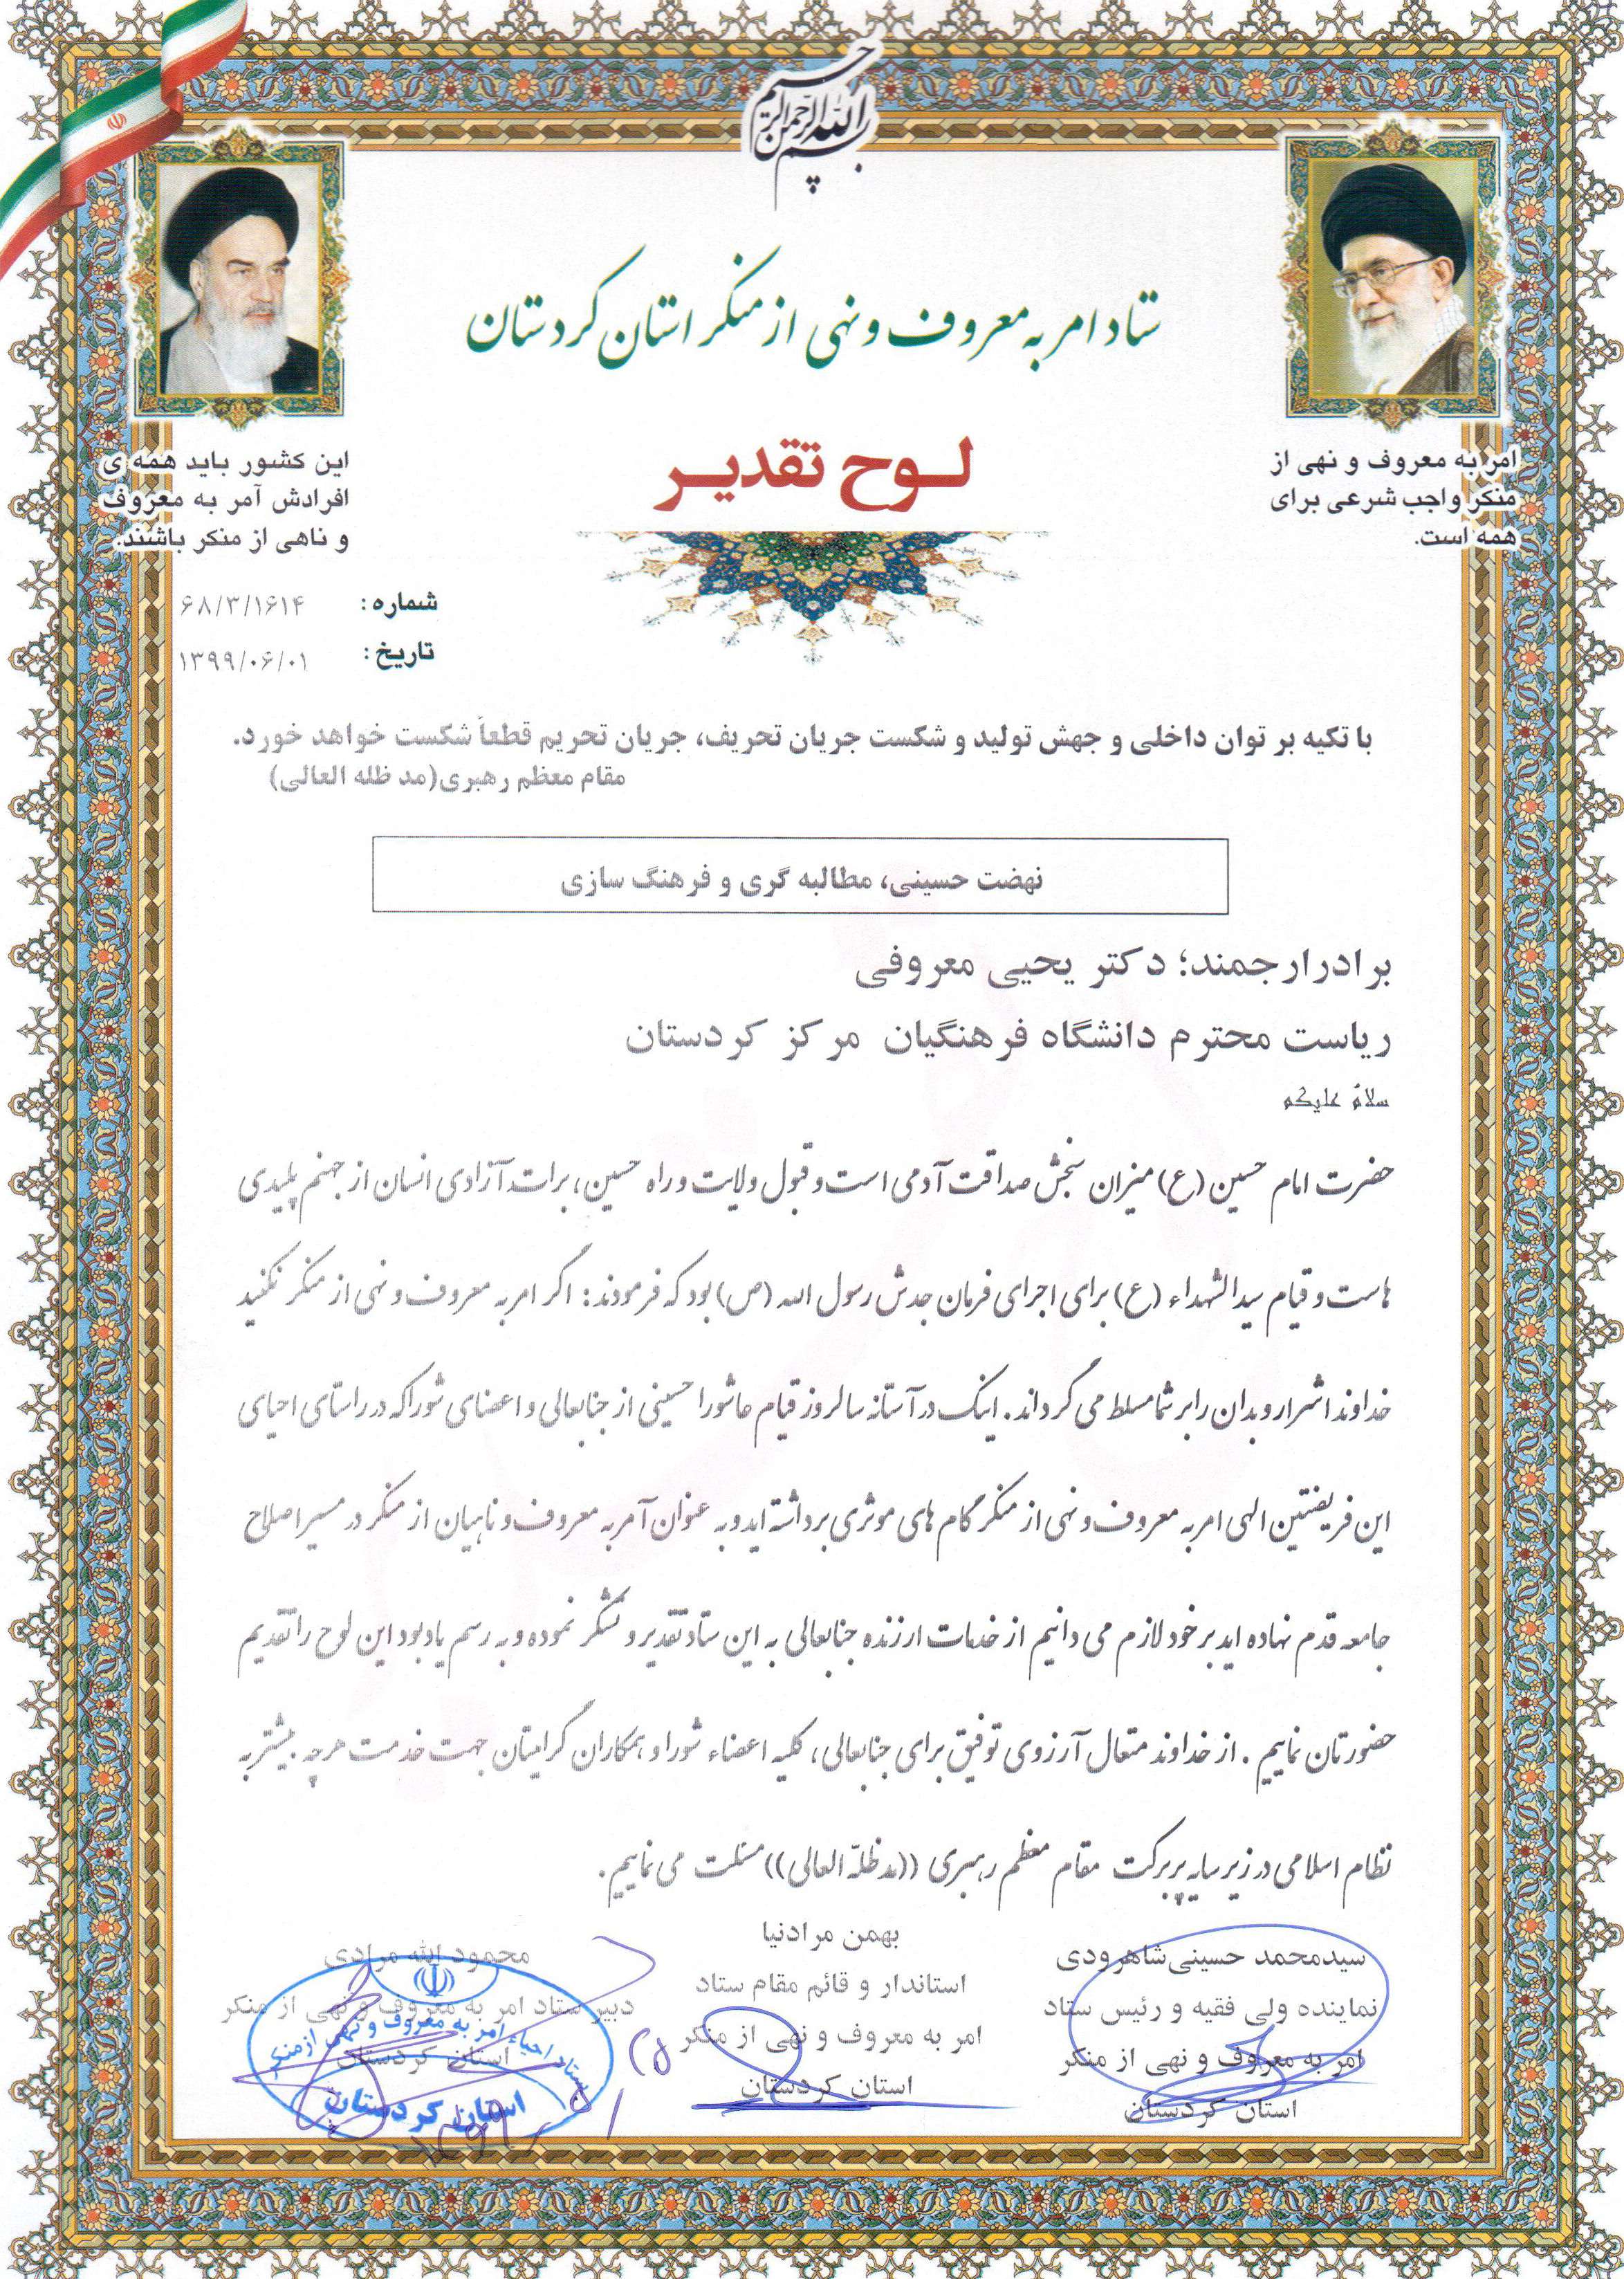 بسم الله الرحمن الرحیم
ستاد امر به معروف و نهی از منکر استان کردستان
لوح تقدیر
امر به معروف و نهی از
منکر واجب شرعی برای
همه است.
این کشور باید همه ی
افرادش آمر به معروف
و ناهی از منکر باشند.
شماره : ۶۸/۳/۱۶۱۴
تاریخ : ۱۳۹۹/۰۶/۰۱
با تکیه بر توان داخلی و جهش تولید و شکست جریان تحریف، جریان تحریم قطعاً شکست خواهد خورد.
مقام معظم رهبری(مد ظله العالی)
نهضت حسینی، مطالبه گری و فرهنگ سازی
برادرارجمند؛ دکتر یحیی معروفی
ریاست محترم دانشگاه فرهنگیان مرکز کردستان
سلامٌ علیکم
حضرت امام حسین (ع) میزان سنجش صداقت آدمی است و قبول ولایت و راه حسین، برات آزادی انسان از جهنم پلیدی
هاست و قیام سیدالشهداء (ع) برای اجرای فرمان جدش رسول الله (ص) بود که فرمودند: اگر امر به معروف و نهی از منکر نکنید
خداوند اشرار و بدان را بر شما مسلط می گرداند. اینک در آستانه سالروز قیام عاشورا حسینی از جنابعالی و اعضای شورا که در راستای احیای
این فریضتین الهی امر به معروف و نهی از منکر گام های موثری برداشته اید و به عنوان آمر به معروف و ناهیان از منکر در مسیر اصلاح
جامعه قدم نهاده اید بر خود لازم می دانیم از خدمات ارزنده جنابعالی به این ستاد تقدیر و تشکر نموده و به رسم یادبود این لوح را تقدیم
حضورتان نماییم . از خداوند متعال آرزوی توفیق برای جنابعالی، کلیه اعضاء شورا و همکاران گرامیتان جهت خدمت هرچه بیشتر به
نظام اسلامی در زیر سایه پر برکت مقام معظم رهبری ((مدظلّه العالی)) مسئلت می نماییم.
سیدمحمد حسینی‌شاهرودی
نماینده ولی فقیه و رئیس ستاد
امر به معروف و نهی از منکر
استان کردستان
بهمن مرادنیا
استاندار و قائم مقام ستاد
امر به معروف و نهی از منکر
استان کردستان
محمود الله مرادی
دبیر ستاد امر به معروف و نهی از منکر
استان کردستان
ستاد احیاء امر به معروف و نهی از منکر
استان کردستان